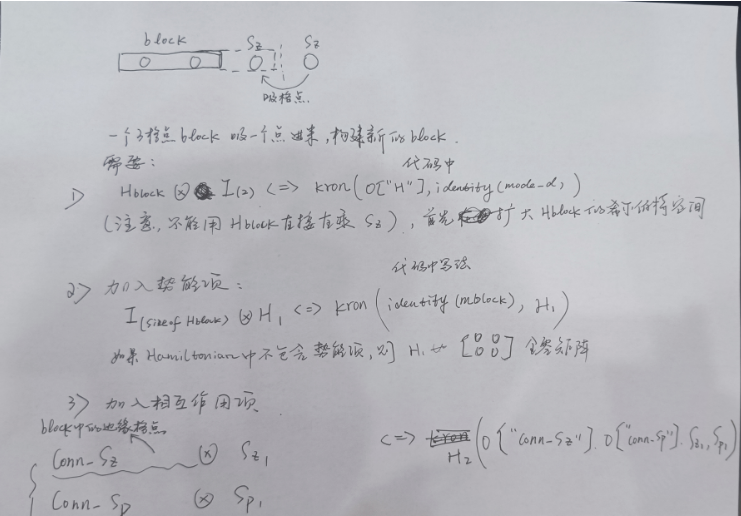 block Sz Sz
吸格点
一个3格点block吸一个点进来,构建新的block.
需要: 代码中
1> Hblock ⊗ I(2) <=> kron(O["H"], identity(model-d,)
(注意,不能用Hblock直接去乘Sz),首先扩大Hblock的希尔伯特空间
代码中写法
2> 加入势能项:
I(size of Hblock) ⊗ H1 <=> kron(identity(mblock), H1)
如果Hamiltonian中不包含势能项,则 H1 为 [0 0 0 0] 全零矩阵
3> 加入相互作用项
block中的边缘格点
Conn-Sz ⊗ Sz1 <=> H2(O["conn-Sz"], O["conn-Sp"], Sz1, Sp1)
Conn-Sp ⊗ Sp1